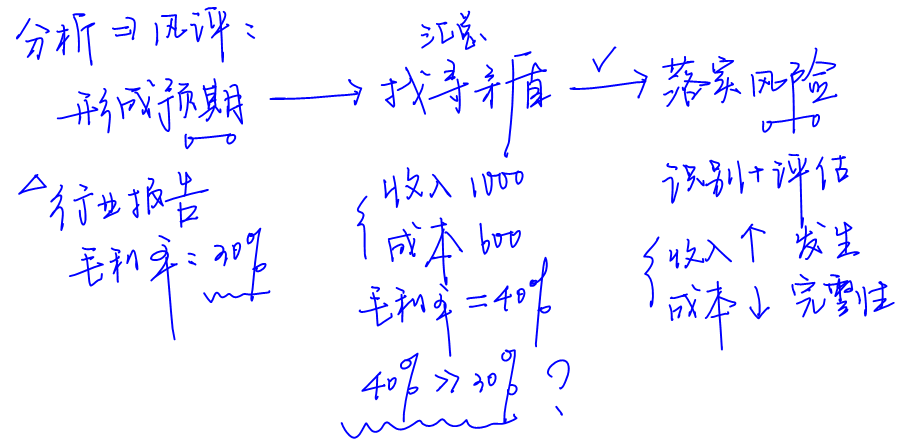 分析⇒风评:
汇总
形成预期 → 找寻矛盾 ✓→ 落实风险
△行业报告
毛利率:30%
收入 1000
成本 600
毛利率=40%
40%≫30% ?
识别+评估
收入↑ 发生
成本↓ 完整性